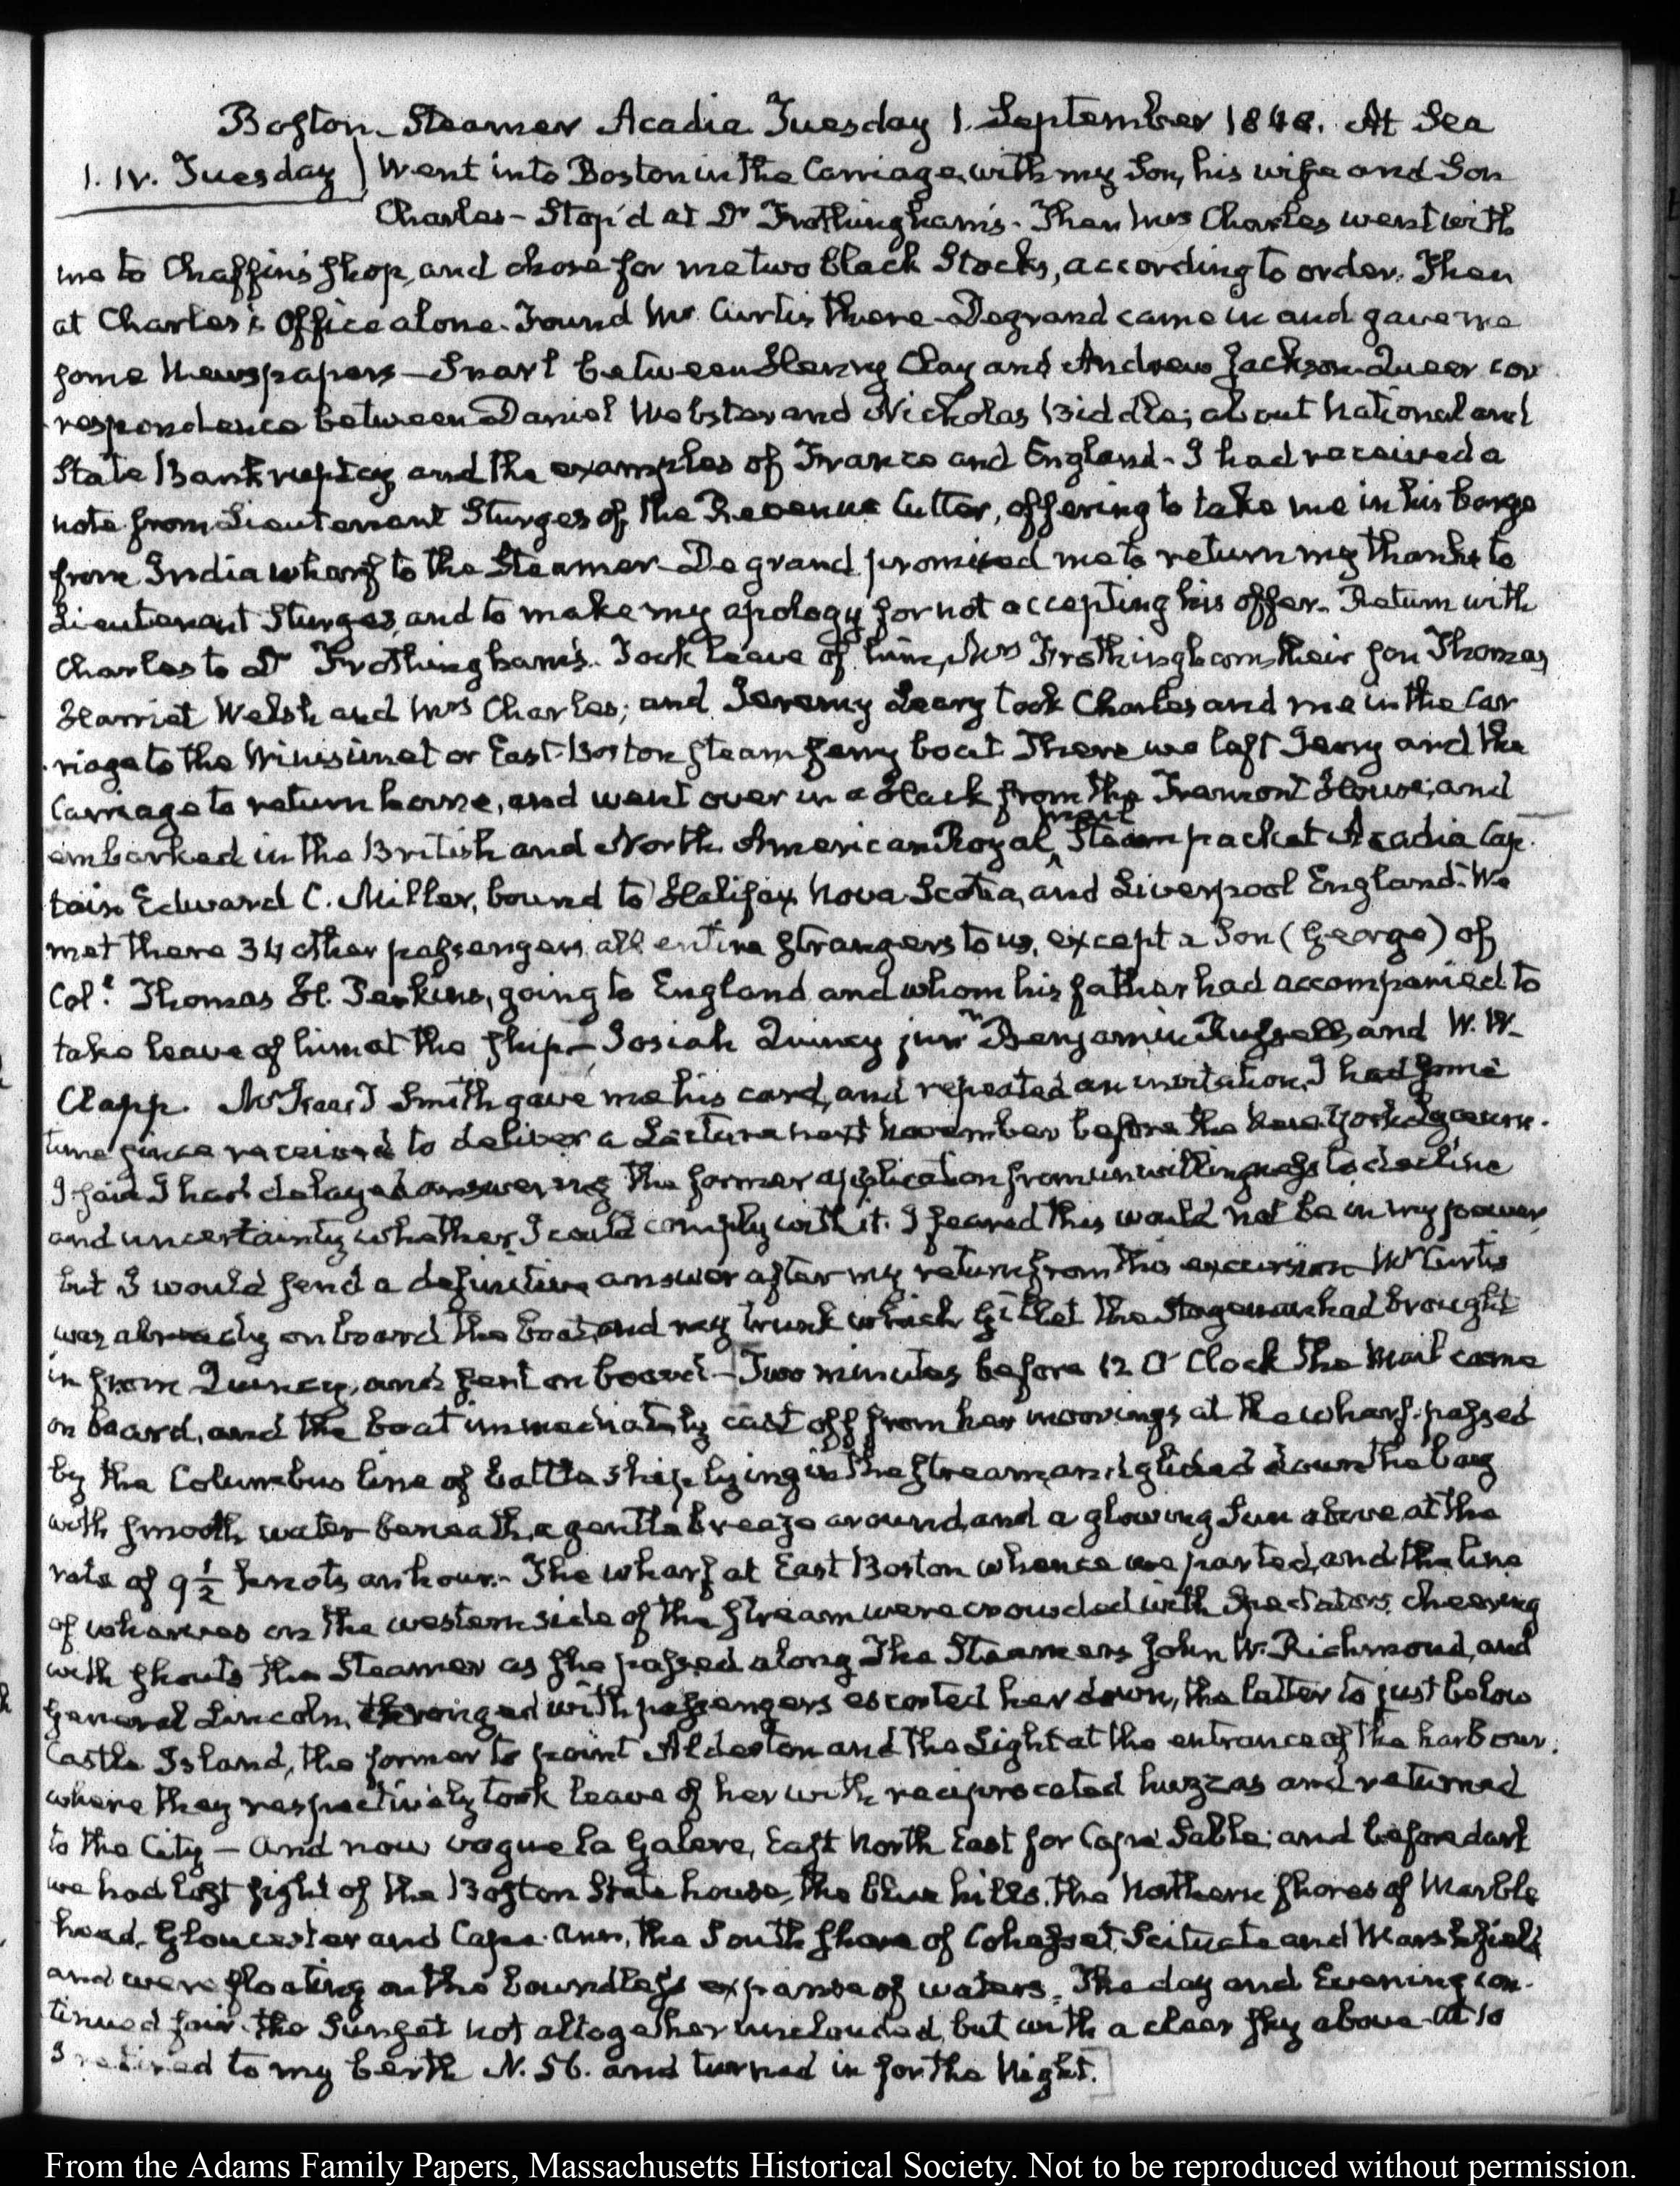 Boston - Steamer Acadia. Tuesday 1. September 1840. At Sea
1. IV. Tuesday) Went into Boston in the Carriage, with my Son, his wife and Son
Charles - Stop'd at Dr Frothingham's. Then Mrs Charles went with
me to Chaffin's shop, and chose for me two black Stocks, according to order. Then
at Charles's Office alone. Found Mr Curtis there - Degrand came in and gave me
some Newspapers - Snarl between Henry Clay and Andrew Jackson - Queer cor
respondence between Daniel Webster and Nicholas Biddle; about National and
State Bankruptcy and the examples of France and England - I had received a
note from Lieutenant Sturges of the Revenue Cutter, offering to take me in his barge
from India wharf to the Steamer - Degrand promised me to return my thanks to
Lieutenant Sturges, and to make my apology for not accepting his offer. Return with
Charles to Dr Frothingham's. Took leave of him, Mrs Frothingham, their son Thomas,
Harriet Welsh and Mrs Charles; and Jeremy Leary took Charles and me in the Car
riage to the Winisimet or East-Boston steam ferry boat. There we left Jerry and the
Carriage to return home, and went over in a Hack from the Tremont House; and
embarked in the British and North American Royal mail Steam packet Acadia Cap-
tain Edward C. Miller, bound to Halifax Nova-Scotia, and Liverpool England. We
met there 34 other passengers all entire strangers to us, except a Son (George) of
Coll. Thomas H. Perkins, going to England and whom his father had accompanied to
take leave of him at the ship - Josiah Quincy junr Benjamin Russell, and W. W.
Clapp. Mr Isaac T Smith gave me his card, and repeated an invitation, I had some
time since received to deliver a Lecture next November before the New-York Lyceum.
I said I had delayed answering the former application from unwillingness to decline
and uncertainty whether I could comply with it. I feared this would not be in my power
but I would send a definitive answer after my return from this excursion - Mr Curtis
was already on board the boat, and my trunk which Gillet the Stageman had brought
in from Quincy, and sent on board. - Two minutes before 12 O'Clock the Mail came
on board, and the boat immediately cast off from her moorings at the wharf. passed
by the Columbus line of battle ship lying in the stream, and glided down the bay
with smooth water beneath, a gentle breeze around, and a glowing Sun above at the
rate of 9 1/2 knots an hour. - The wharf at East Boston whence we parted, and the line
of wharves on the western side of the stream were crowded with Spectators, cheering
with shouts the Steamer as she passed along. The Steamers John W. Richmond, and
General Lincoln, thronged with passengers escorted her down, the latter to just below
Castle Island, the former to point Alderton and the Light at the entrance of the harbour.
where they respectively took leave of her with reciprocated huzzas and returned
to the City - And now vogue la Galere, East North East for Cape Sable; and before dark
we had lost sight of the Boston State house, the blue hills, the Northern shores of Marble
head, Gloucester and Cape-Ann, the South shore of Cohasset, Scituate and Marshfield
and were floating on the boundless expanse of waters. The day and Evening con-
tinued fair. the Sunset not altogether unclouded, but with a clear sky above. At 10
I retired to my berth N. 56. and turned in for the Night.]
From the Adams Family Papers, Massachusetts Historical Society. Not to be reproduced without permission.